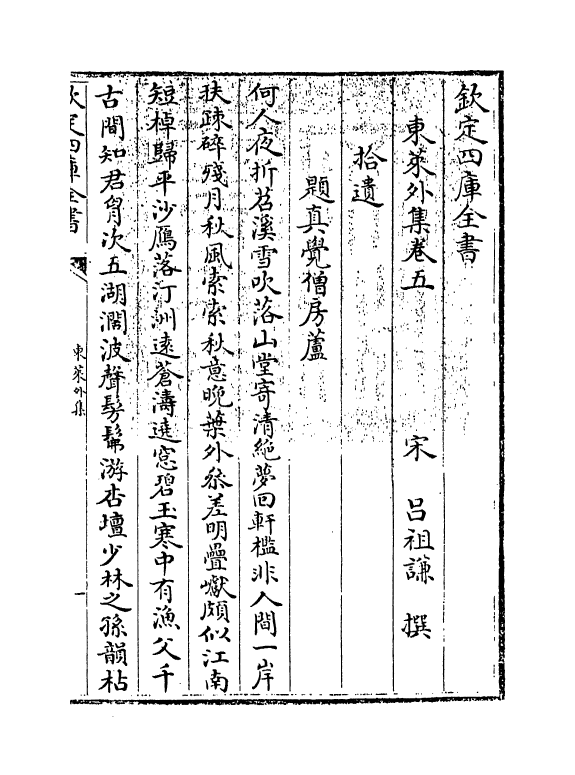 欽定四庫全書
東萊外集卷五
宋 呂祖謙 撰
拾遺
題真覺僧房蘆
何人夜折苕溪雪吹落山堂寄清絶夢回軒檻非人間一岸
扶疎碎殘月秋風索索秋意晚葉外參差明疊巘頗似江南
短棹歸平沙鴈落汀洲遠蒼濤遶窓碧玉寒中有漁父千
古閒知君胷次五湖濶波聲髣髴游杏壇少林之孫韻枯
欽定四庫全書
東萊外集
一